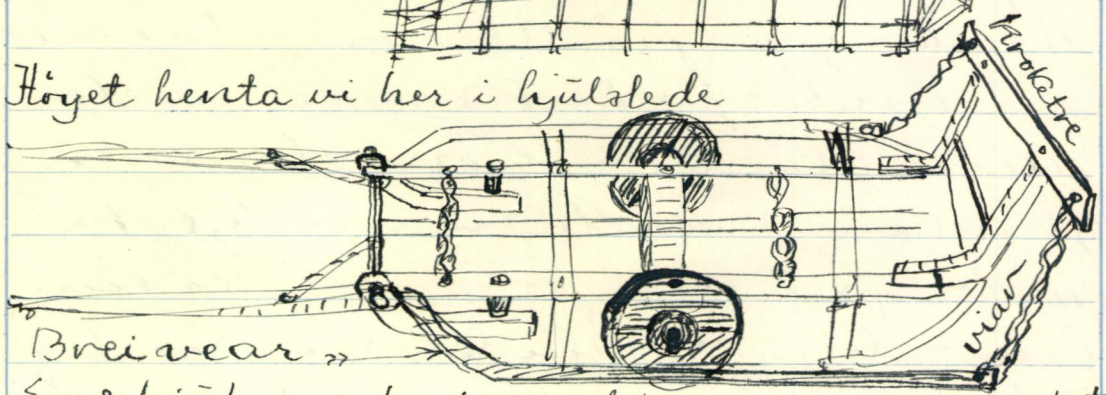 Höyet henta vi her i hjülslede
Krokatre
viar
Breivear »